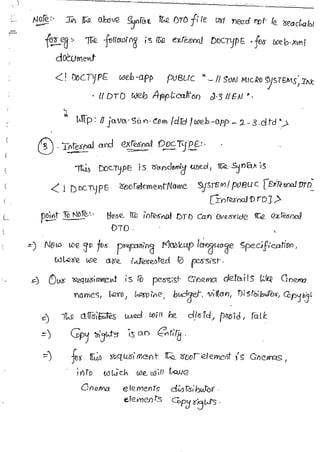 Note:- In the above Syntax the DTD file url need not be reachable
for eg:- The following is the external DOCTYPE for web.xml
document
<! DOCTYPE web-app PUBLIC "-// SUN MICRO SYSTEMS, Inc
// DTD Web Application 2.3 //EN".
http: // java.sun.com /dtd / web-app-2-3.dtd">
③. Internal and external DOCTYPE:-
This DOCTYPE is randomly used, the Syntax is
<! DOCTYPE rootelementName SYSTEM/PUBLIC [External DTD]
[Internal DTD]>
point To Note:- Here the internal DTD Can Override the external
DTD.
=) Now we go for preparing Markup language Specification,
where we are interested to persist.
=) Our requirement is to persist Cinema details like Cinema
names, hero, heroine, budget, villan, Distributor, Copyright
=) The attributes used will be did, pid, talk
=) Copy rights is an Entity.
=) for this requirement the root element is Cinemas,
into which we will have
Cinema elements distributor
elements Copyrights.